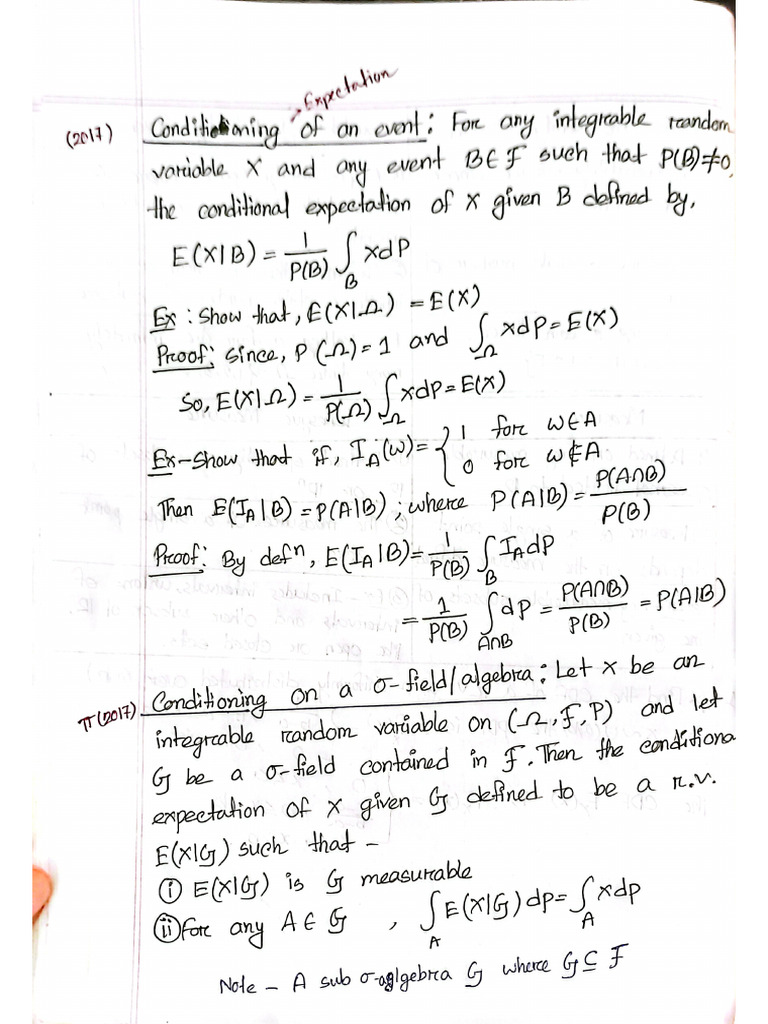 Expectation
(2017) Conditioning of an event: For any integrable random
variable X and any event B∈F such that P(B)≠0,
the conditional expectation of X given B defined by,
E(X|B) = 1/P(B) ∫_B xdP
Ex: Show that, E(X|Ω) = E(X)
Proof: Since, P(Ω)=1 and ∫_Ω xdP = E(X)
So, E(X|Ω) = 1/P(Ω) ∫_Ω xdP = E(X)
Ex-Show that if, I_A(ω) = { 1 for ω∈A
0 for ω∉A
Then E(I_A|B) = P(A|B); where P(A|B) = P(A∩B)/P(B)
Proof: By defⁿ, E(I_A|B) = 1/P(B) ∫_B I_A dP
= 1/P(B) ∫_{A∩B} dP = P(A∩B)/P(B) = P(A|B)
π(2017) Conditioning on a σ-field/algebra: Let X be an
integrable random variable on (Ω, F, P) and let
G be a σ-field contained in F. Then the conditiona
expectation of X given G defined to be a r.v.
E(X|G) such that -
(i) E(X|G) is G measurable
(ii) For any A∈G, ∫_A E(X|G) dp = ∫_A xdp
Note - A sub σ-aglgebra G where G⊆F